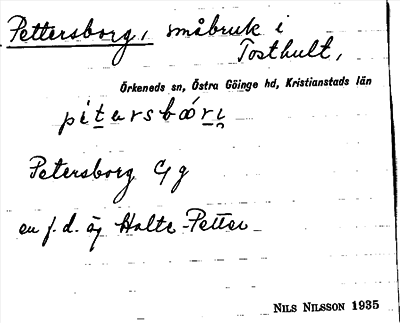 Pettersborg, småbruk i
Tosthult,
Örkeneds sn, Östra Göinge hd, Kristianstads län
Petersborg Gg
en f.d. äg Halte-Petter
NILS NILSSON 1935